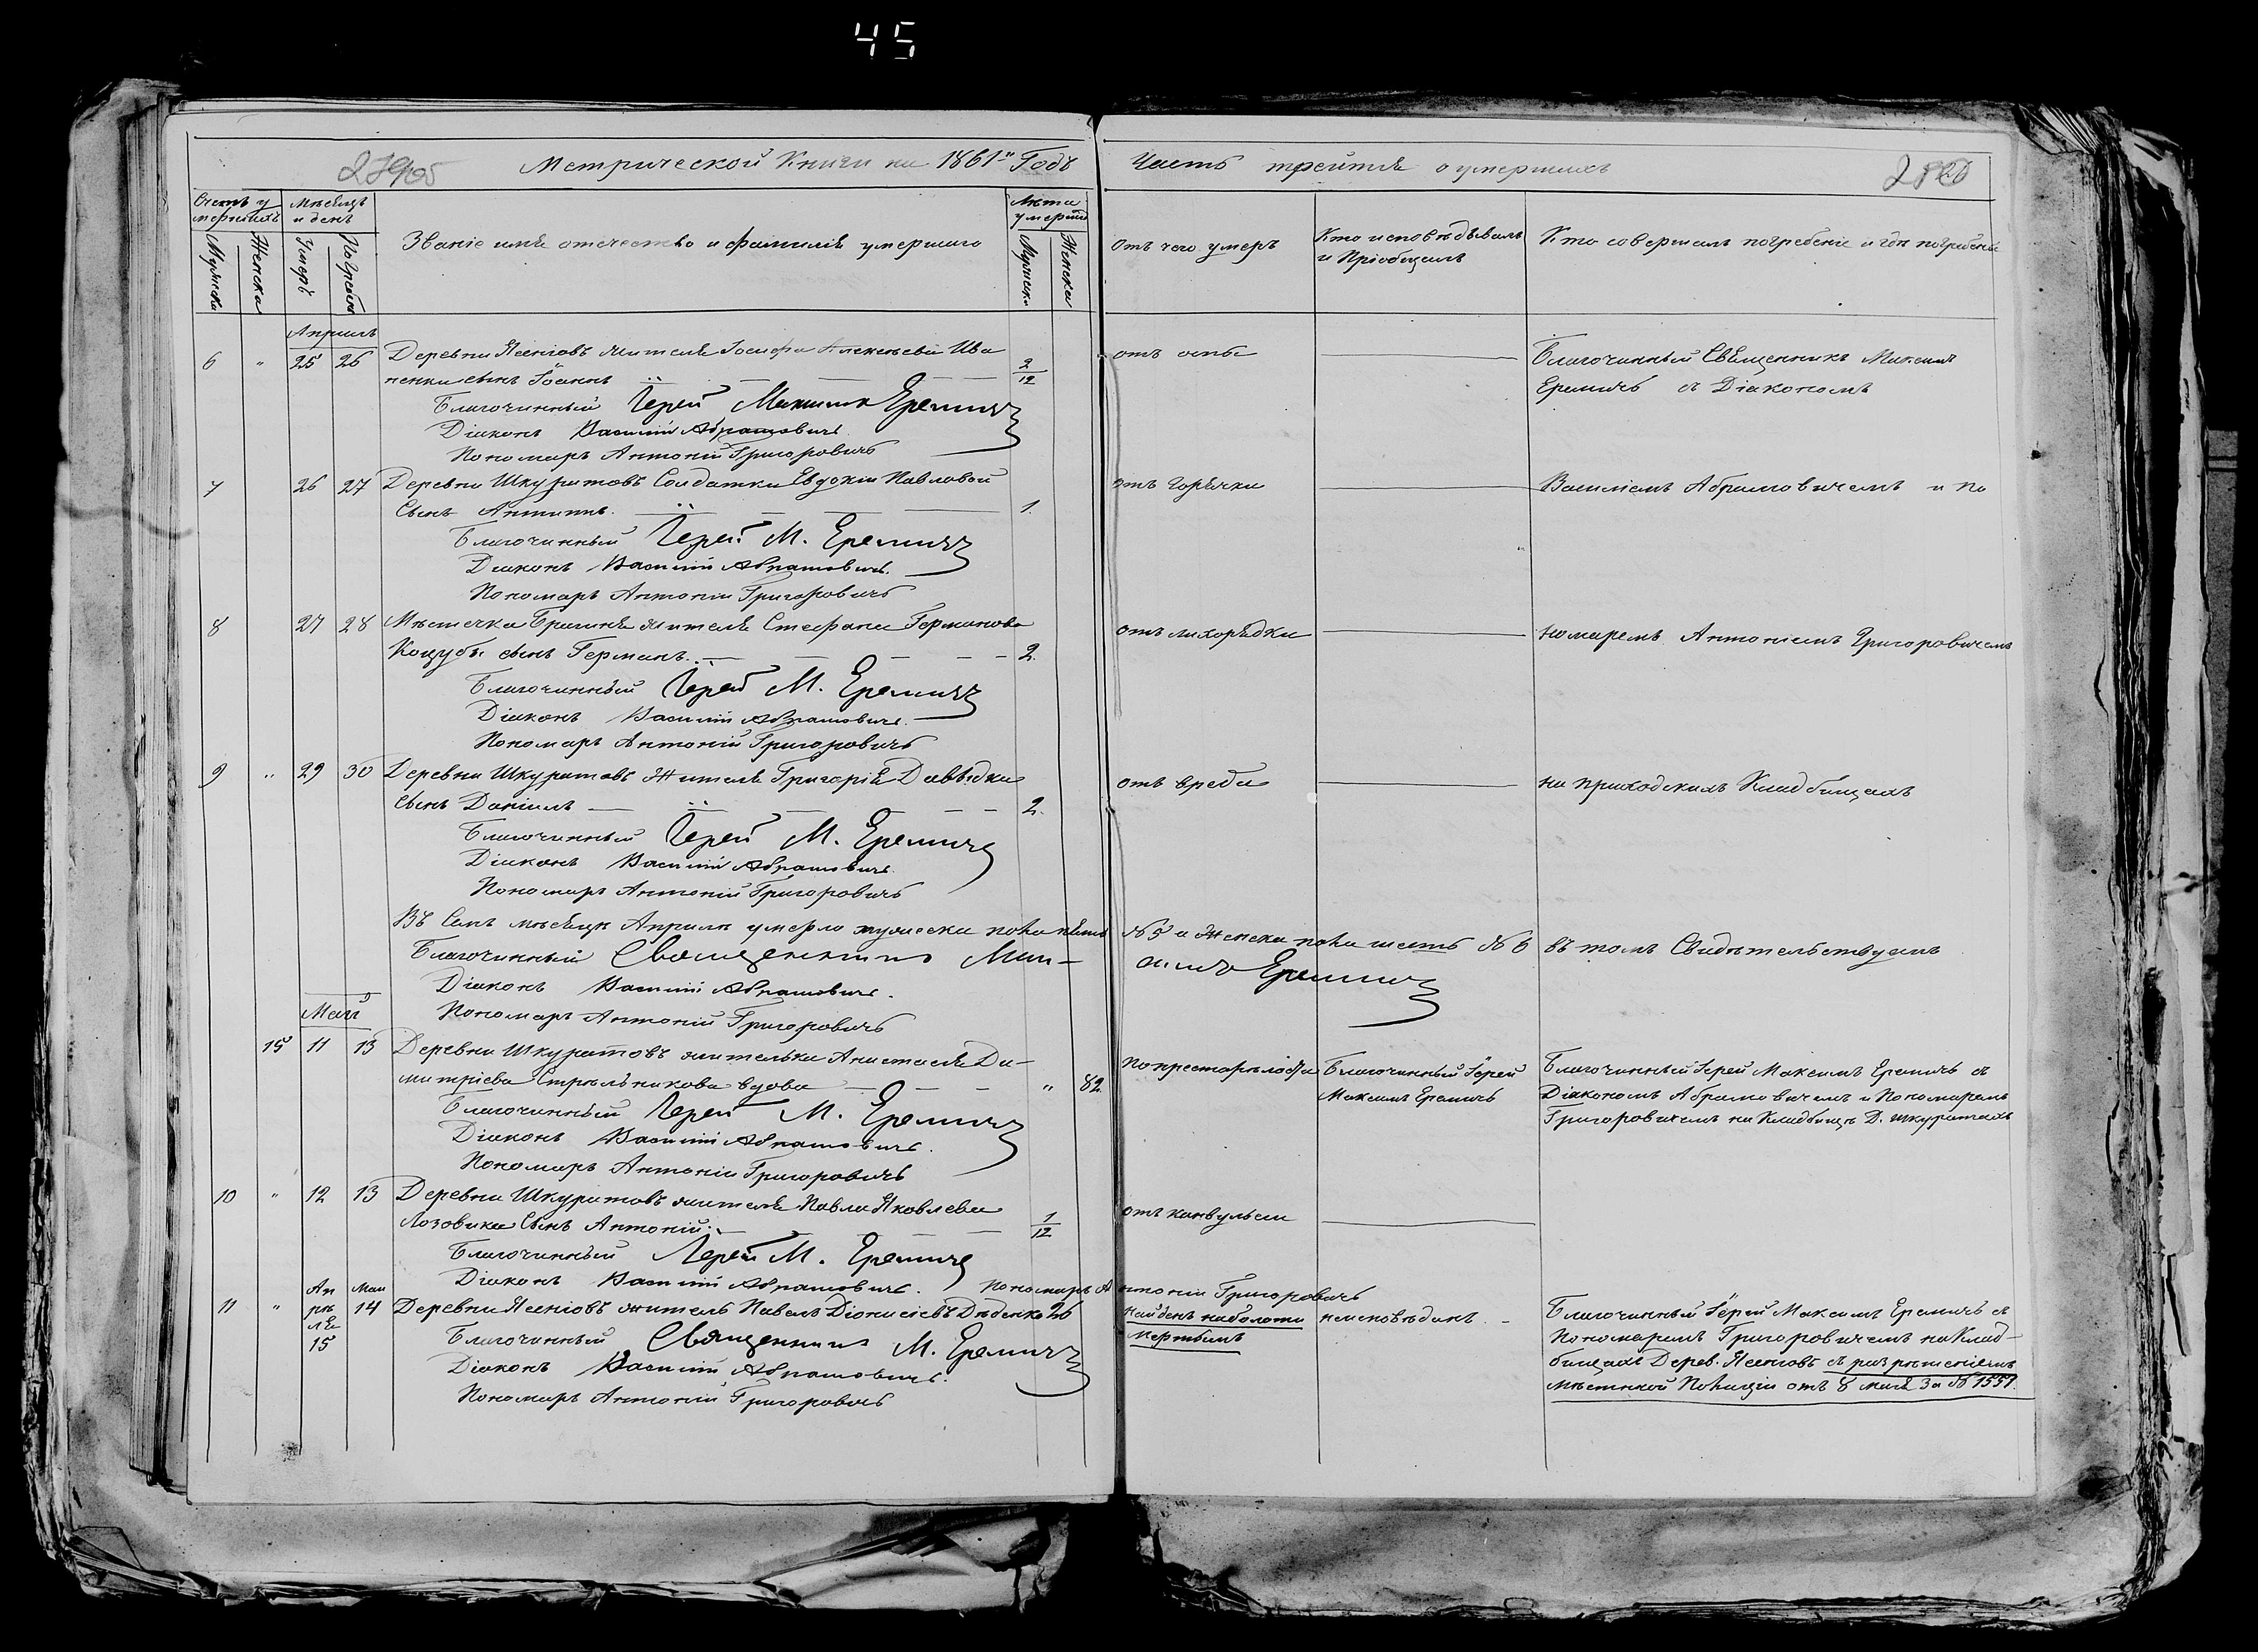 45
Метрической Книги на 1861й Годъ
Часть третія о умершихъ
Счетъ у
мершихъ
Мѣсяцъ
и день
Лѣта
умерши
Мужска
Женска
Умеръ
Погребенъ
Званіе имя отечество и фамилія умершаго
Мужеска
Женска
отъ чего умеръ
Кто исповѣдывалъ
и Пріобщалъ
Кто совершалъ погребеніе и гдѣ погребены
Апрель
6 " 25 26 Деревни Ясеновъ жителя Іосифа Алексѣева Ива
ненки сынъ Іоаннъ 2/12
отъ оспы
Благочинный Священникъ Максимъ
Еремичъ съ Діакономъ
Благочинный Іерей Максимъ Еремичъ
Діаконъ Василій Абрамовичъ
Пономарь Антоній Григоровичъ
7 26 27 Деревни Шкуратовъ Солдатки Евдокіи Павловой
Сынъ Антипъ. 1.
отъ горячки
Василіемъ Абрамовичемъ и по
Благочинный Іерей М. Еремичъ
Діаконъ Василій Абрамовичъ.
Пономарь Антоній Григоровичъ
8 27 28 Мѣстечка Брагиня жителя Стефана Германова
Коцубы сынъ Германъ. 2.
отъ лихорадки
номаремъ Антоніемъ Григоровичемъ
Благочинный Іерей М. Еремичъ
Діаконъ Василій Абрамовичъ.
Пономарь Антоній Григоровичъ
9 " 29 30 Деревни Шкуратовъ Жителя Григорія Давыдки
сынъ Даніилъ 2.
отъ вреда
на приходскихъ Кладбищахъ
Благочинный Іерей М. Еремичъ
Діаконъ Василій Абрамовичъ.
Пономарь Антоній Григоровичъ
Въ Семъ мѣсяцѣ Апрелѣ умерло мужеска пола пять № 5 и Женска пола шесть № 6 въ томъ Свидѣтельствуемъ
Благочинный Священникъ Мак-
симъ Еремичъ
Діаконъ Василій Абрамовичъ.
Пономарь Антоній Григоровичъ
Май
15 11 13 Деревни Шкуратовъ жителька Анастасія Ди-
митріева Стрѣльникова вдова " 82.
по престарѣлости
Благочинный Іерей
Максимъ Еремичъ
Благочинный Іерей Максимъ Еремичъ съ
Діакономъ Абрамовичемъ и Пономаремъ
Григоровичемъ на Кладбищѣ Д. Шкуратахъ
Благочинный Іерей М. Еремичъ
Діаконъ Василій Абрамовичъ.
Пономарь Антоній Григоровичъ
10 " 12 13 Деревни Шкуратовъ жителя Павла Яковлева
Лозовика Сынъ Антоній. 1/12
отъ канвульси
Благочинный Іерей М. Еремичъ
Діаконъ Василій Абрамовичъ. Пономарь Антоній Григоровичъ
Ап
рѣ
ля
15
Маи
14
11 " Деревни Ясеновъ житель Павелъ Діонисіевъ Дѣденко 26
найденъ на болоти
мертвымъ
неисповѣданъ
Благочинный Іерей Максимъ Еремичъ съ
Пономаремъ Григоровичемъ на Клад-
бищахъ Дерев. Ясеновъ съ разрѣшеніемъ
мѣстной Полиціи отъ 8 мая за № 1551.
Благочинный Священникъ М. Еремичъ
Діаконъ Василій Абрамовичъ.
Пономарь Антоній Григоровичъ